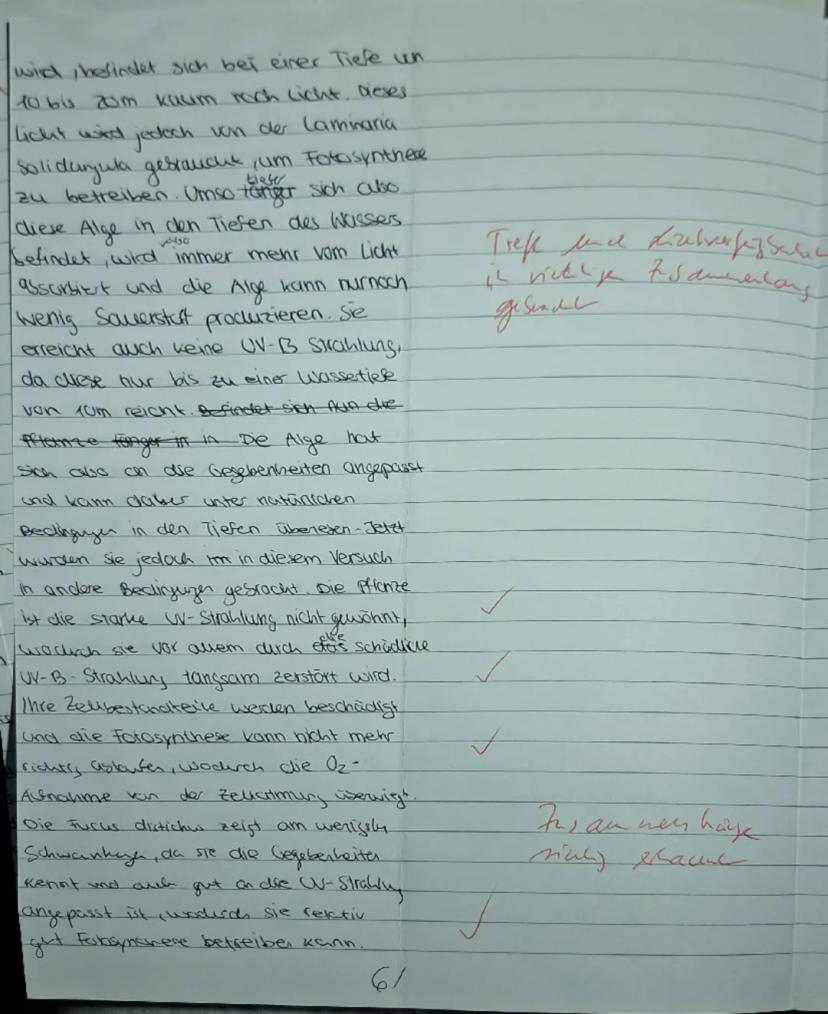 wird, befindet sich bei einer Tiefe von
10 bis 20m kaum noch Licht. Dieses
Licht wird jedoch von der Laminaria
solidungula gebraucht, um Fotosynthese
zu betreiben. Umso tiefer sich also
diese Alge in den Tiefen des Wassers
befindet, wird immer mehr vom Licht
absorbiert und die Alge kann nurnoch
wenig Sauerstoff produzieren. Sie
erreicht auch keine UV-B Strahlung,
da diese nur bis zu einer Wassertiefe
von 10m reicht. Befindet sich nun die
Pflanze länger in in Die Alge hat
sich also an die Gegebenheiten angepasst
und kann daher unter natürlichen
Bedingungen in den Tiefen überleben. Jetzt
wurden sie jedoch in diesem Versuch
in andere Bedingungen gebracht. Die Pflanze
ist die starke UV-Strahlung nicht gewöhnt,
wodurch sie vor allem durch die schädliche
UV-B-Strahlung langsam zerstört wird.
Ihre Zellbestandteile werden beschädigt
und die Fotosynthese kann nicht mehr
richtig ablaufen, wodurch die O2-
Aufnahme von der Zellatmung überwiegt.
Die Fucus distichus zeigt am wenigsten
Schwankungen, da sie die Gegebenheiten
kennt und auch gut an die UV-Strahlung
angepasst ist, wodurch sie relativ
gut Fotosynthese betreiben kann.
Tiefe und
in richtigen Zusammenhang
gebracht
Zusammenhänge
richtig erkannt
6/